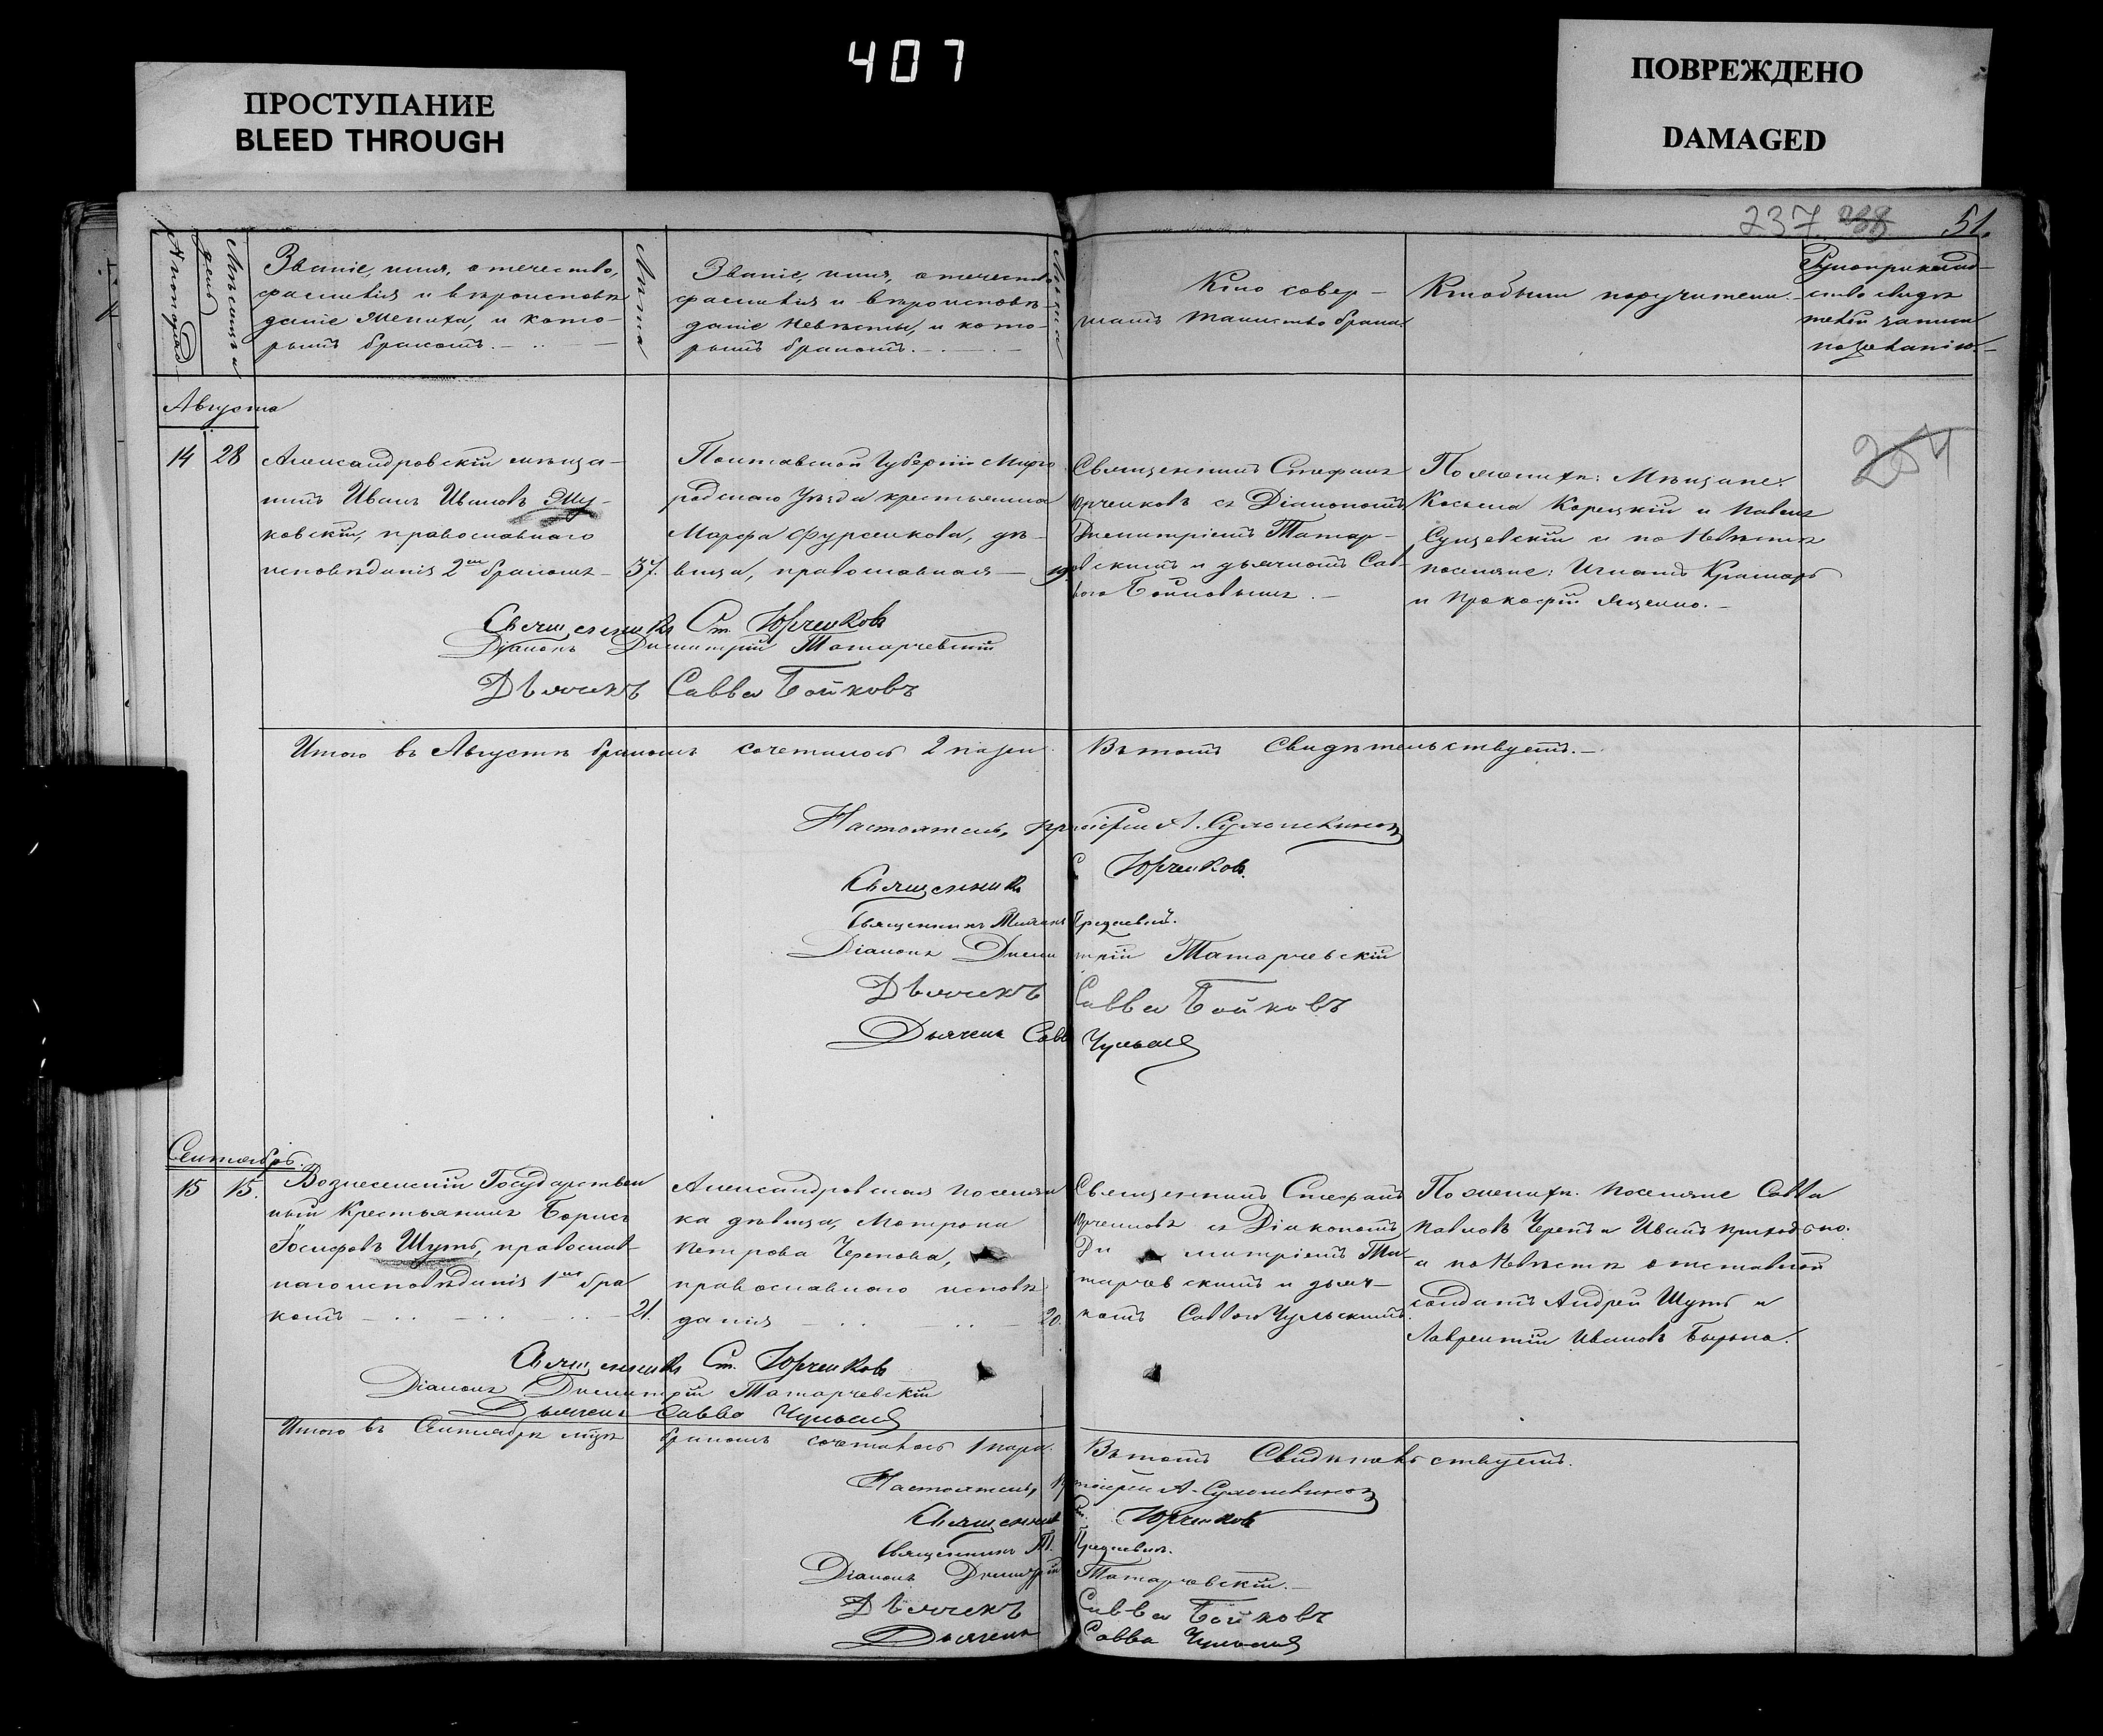 407
ПРОСТУПАНИЕ
BLEED THROUGH
ПОВРЕЖДЕНО
DAMAGED
237. 238 51.
Счетъ браковъ
Мѣсяцъ и день
Званіе, имя, отечество,
фамилія и вѣроисповѣ
даніе Жениха, и кото-
рымъ бракомъ.
Лѣта
Званіе, имя, отечество
фамилія и вѣроисповѣ-
даніе Невѣсты, и кото-
рымъ бракомъ.
Лѣта
Кто совер-
шалъ таинство брака.
Кто были поручители.
Рукоприклад-
ство свидѣ
телей записи
по желанію.
Августа
14 28
Александровскій мѣща-
нинъ Иванъ Ивановъ
ковскій, православнаго
исповѣданія 2мъ бракомъ 37.
Полтавской Губерніи Мирго
родскаго Уѣзда крестьянка
Марфа Фурсенкова, дѣ-
вица, православная 19.
Священникъ Стефанъ
Юрченковъ съ Діакономъ
Димитріемъ Татар-
скимъ и дьячкомъ Сав-
вою Бойковымъ.
По женихѣ: Мѣщане:
Косьма Корецкій и Павелъ
Сущевскій и по Невѣстѣ
поселяне: Игнатъ Крамарь
и Прокофій Яценко.
254
Священникъ Ст. Юрченковъ
Діаконъ Димитрій Татарчевскій
Дьячекъ Савва Бойковъ
Итого въ Августѣ бракомъ сочеталось 2 пары. Въ томъ Свидѣтельствуетъ.
Настоятель, протоіерей А.
Священникъ С. Юрченковъ.
Священникъ
Діаконъ Димитрій Татарчевскій
Дьячекъ Савва Бойковъ
Дьячекъ Савва Чульскій
Сентябрь.
15 15.
Вознесенскій Государствен
ный Крестьянинъ Борисъ
Іосифовъ Шутъ, православ-
наго исповѣданія 1мъ бра
комъ 21.
Александровская поселян
ка дѣвица, Матрона
Петрова Черепова,
православнаго исповѣ
данія 20.
Священникъ Стефанъ
Юрченковъ съ Діакономъ
Ди митріемъ Та-
тарчевскимъ и дьяч-
комъ Саввою Чульскимъ.
По женихѣ. поселяне Савва
Павловъ Черепъ и Иванъ Приходько.
и по Невѣстѣ отставной
солдатъ Андрей Шутъ и
Лаврентій Ивановъ
Священникъ Ст. Юрченковъ
Діаконъ Димитрій Татарчевскій
Дьячекъ Савва Чульскій
Итого въ Сентябрѣ м-цѣ бракомъ сочеталось 1 пара. Въ томъ Свидѣтельствуетъ.
Настоятель, протоіерей А.
Священникъ Ст. Юрченковъ
Священникъ Т.
Діаконъ Димитрій Татарчевскій.
Дьячекъ Савва Бойковъ
Дьячекъ Савва Чульскій